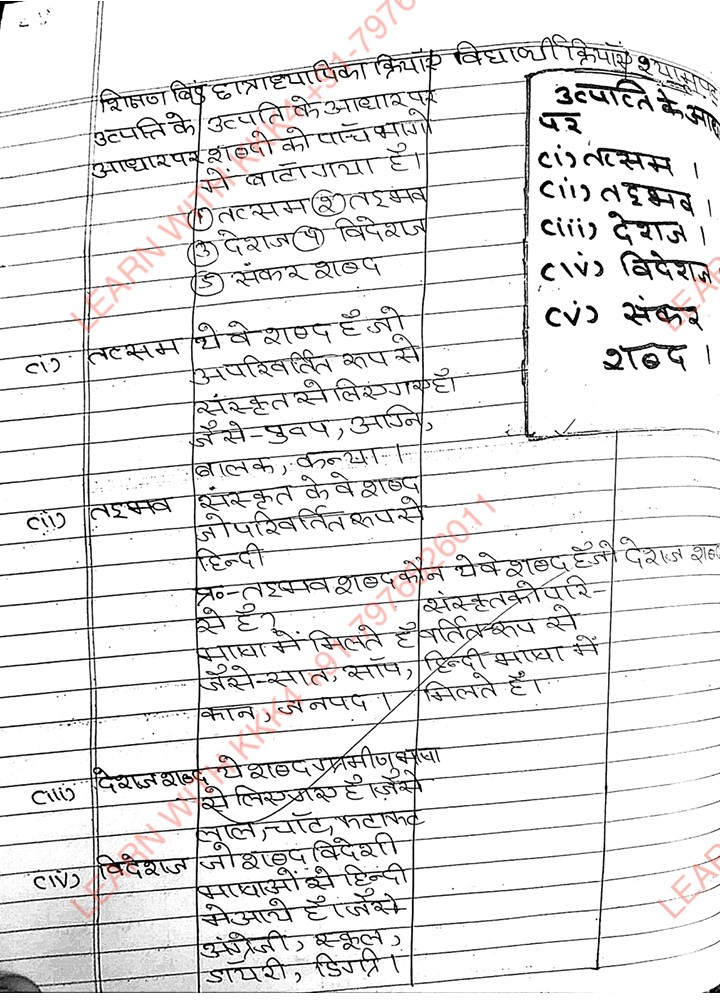 शिक्षण बिंदु छात्राध्यापिका क्रियाएँ विद्यार्थी क्रियाएँ श्यामपट
उत्पत्ति के उत्पत्ति के आधार पर
आधार पर शब्दों को पाँच भागो
में बाटा गया है।
① तत्सम ② तद्भव
③ देशज ④ विदेशज
⑤ संकर शब्द
उत्पत्ति के आधा
पर
(i) तत्सम ।
(ii) तद्भव ।
(iii) देशज ।
(iv) विदेशज
(v) संकर
शब्द ।
(i) तत्सम ये वे शब्द है जो
अपरिवर्तित रूप से
संस्कृत से लिए गए है।
जैसे - पुष्प, अग्नि,
बालक, कन्या ।
(ii) तद्भव संस्कृत के वे शब्द
जो परिवर्तित रूप से
हिन्दी
प्र०- तद्भव शब्द कौन ये वे शब्द है जो देशज शब्द
से है? संस्कृत को परि-
भाषा में मिलते है वर्तित रूप से
जैसे - सात, साँप, हिन्दी भाषा में
कान, जनपद । मिलते है।
(iii) देशज शब्द ये शब्द ग्रामीण भाषा
से लिए गए है। जैसे
लाल, चाँट, फटाफट
(iv) विदेशज जो शब्द विदेशी
भाषाओं से हिन्दी
मे आये है। जैसे
अंग्रेजी, स्कूल,
डायरी, डिग्री ।
LEARN WITH KKK4 +91-7976926011